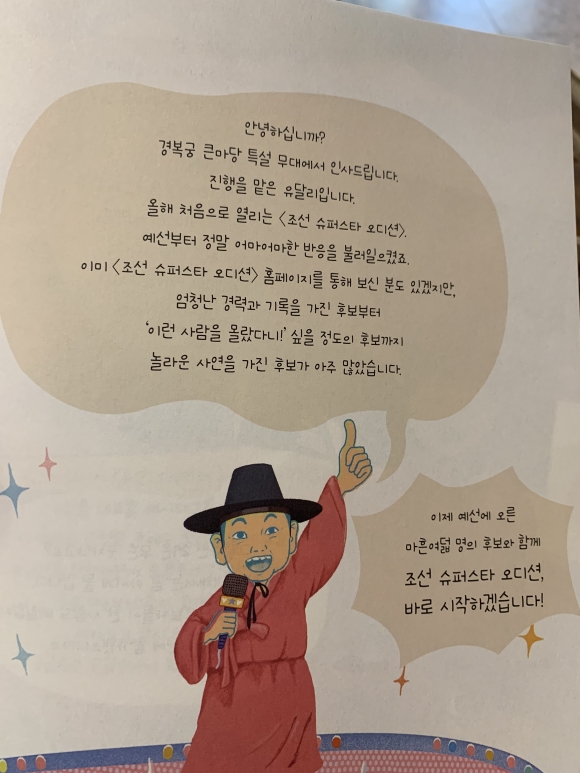 안녕하십니까?
경복궁 큰마당 특설 무대에서 인사드립니다.
진행을 맡은 유달리입니다.
올해 처음으로 열리는 〈조선 슈퍼스타 오디션〉.
예선부터 정말 어마어마한 반응을 불러일으켰죠.
이미 〈조선 슈퍼스타 오디션〉 홈페이지를 통해 보신 분도 있겠지만,
엄청난 경력과 기록을 가진 후보부터
‘이런 사람을 몰랐다니!’ 싶을 정도의 후보까지
놀라운 사연을 가진 후보가 아주 많았습니다.
이제 예선에 오른
마흔여덟 명의 후보와 함께
조선 슈퍼스타 오디션,
바로 시작하겠습니다!